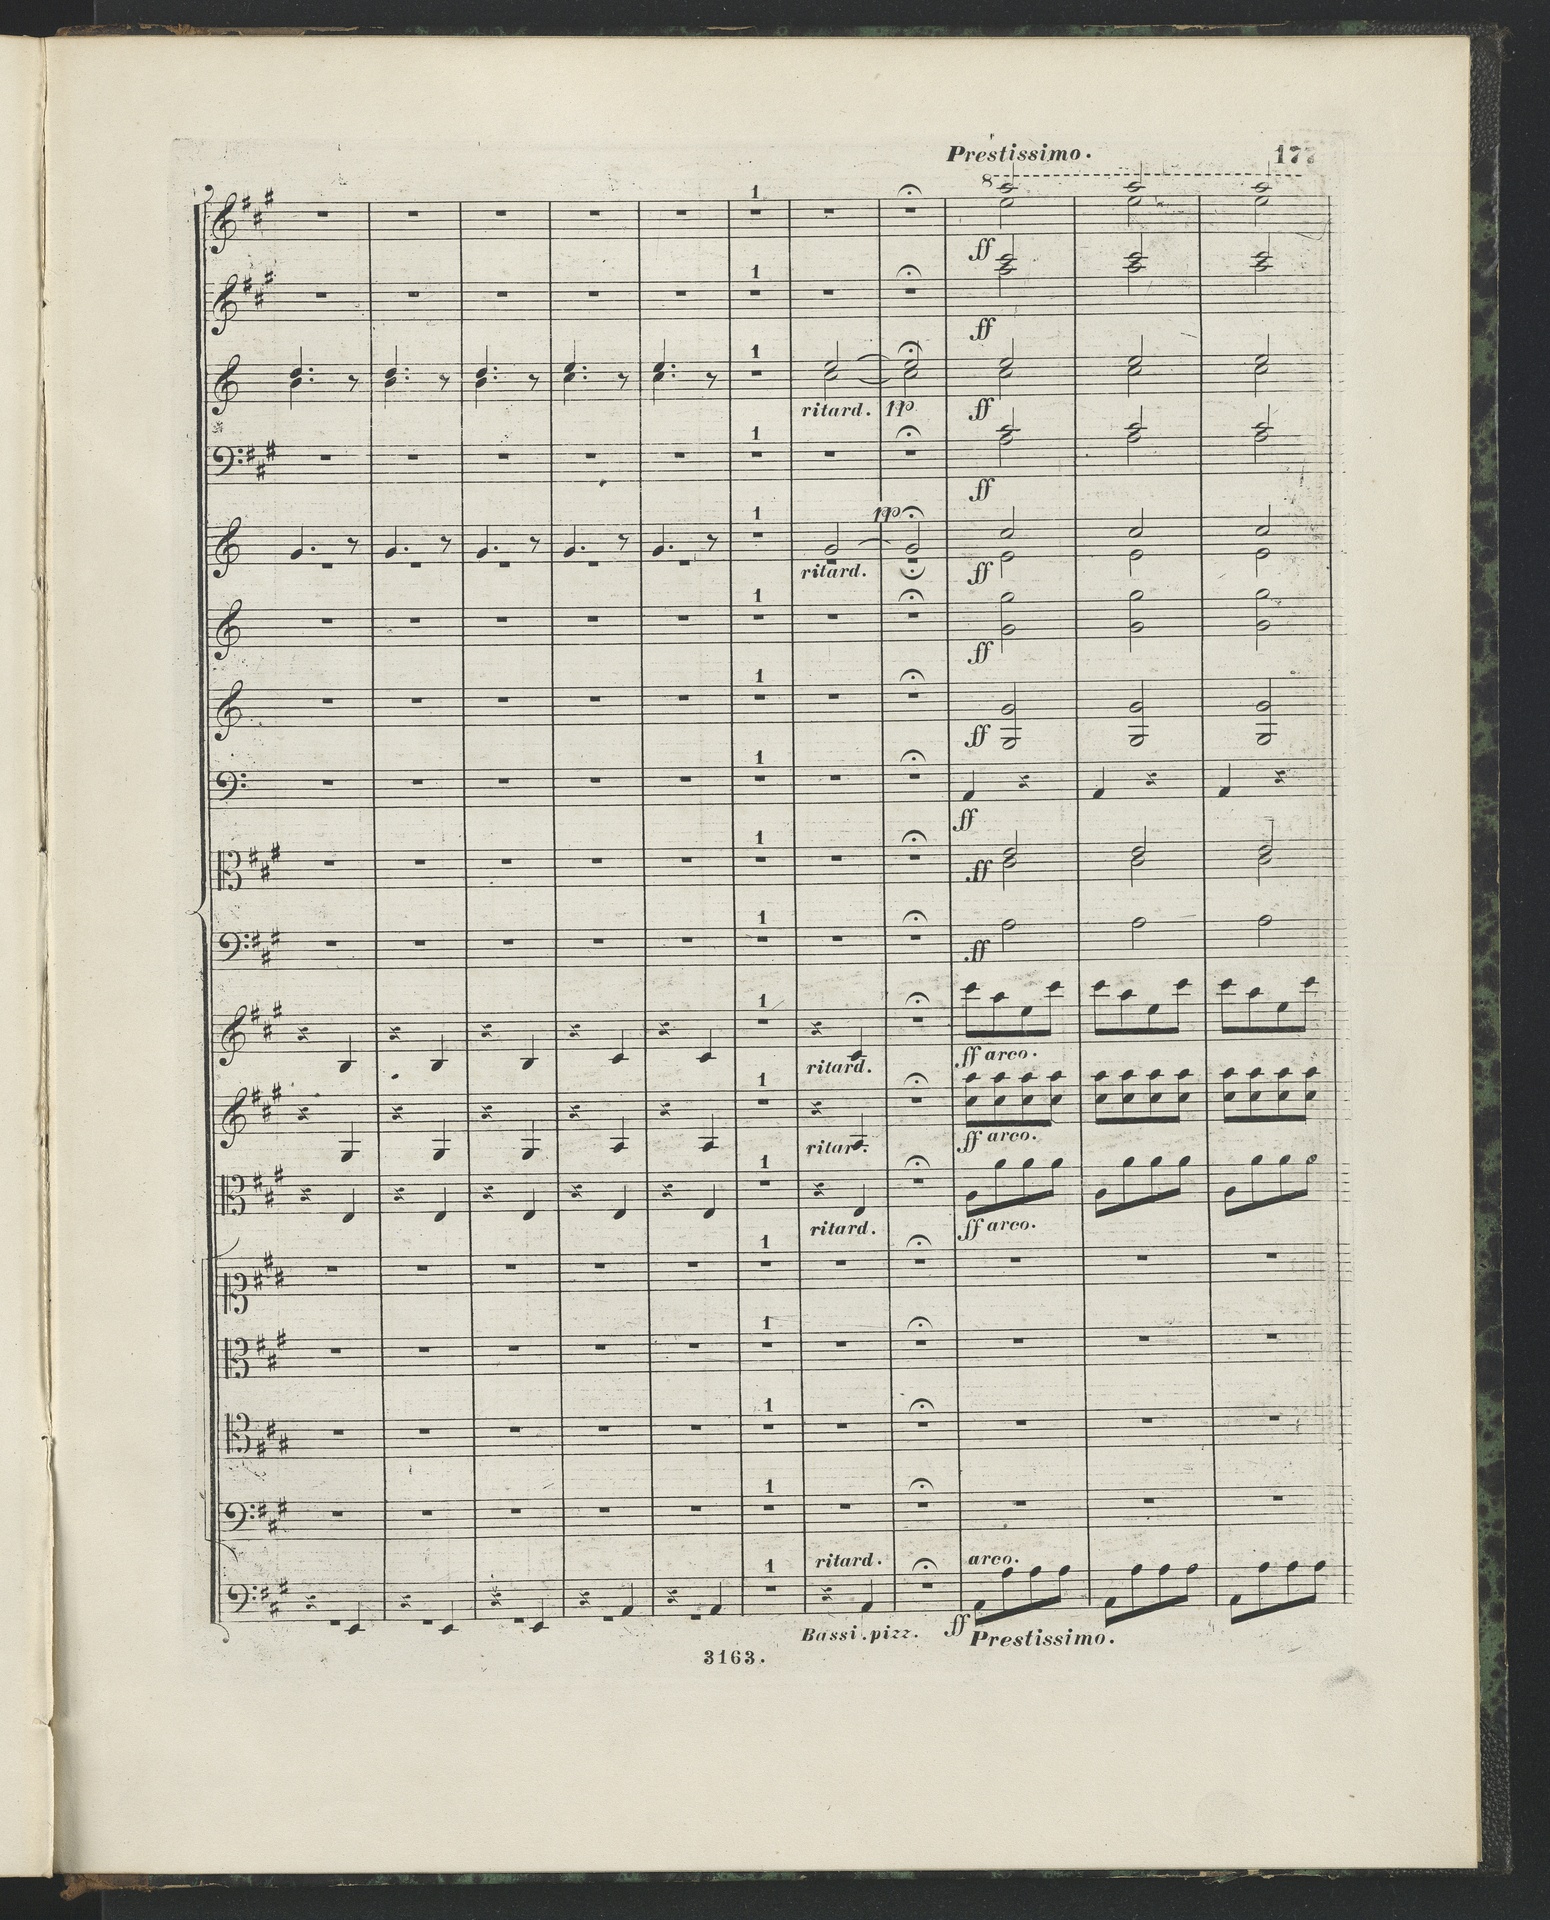 Prestissimo. 177
8
1
ff
1
ff
1
ritard. pp ff
1
ff
1 pp
ritard. ff
1
ff
1
ff
1
ff
1
ff
1
ff
1
ritard. ff arco.
1
ritar. ff arco.
1
ritard. ff arco.
1
1
1
1
1 ritard. arco.
Bassi. pizz. ff Prestissimo.
3163.